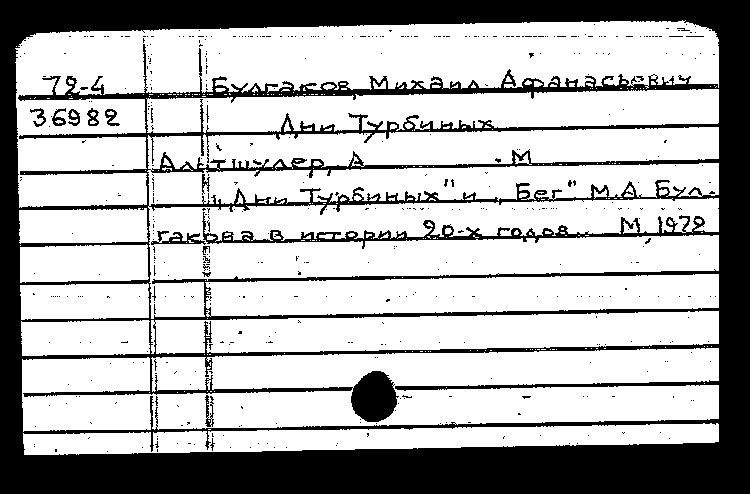 72-4 Булгаков, Михаил Афанасьевич
36982 Дни Турбиных
Альтшулер, А. М
„Дни Турбиных" и „Бег" М.А. Бул-
гакова в истории 20-х годов. М, 1972